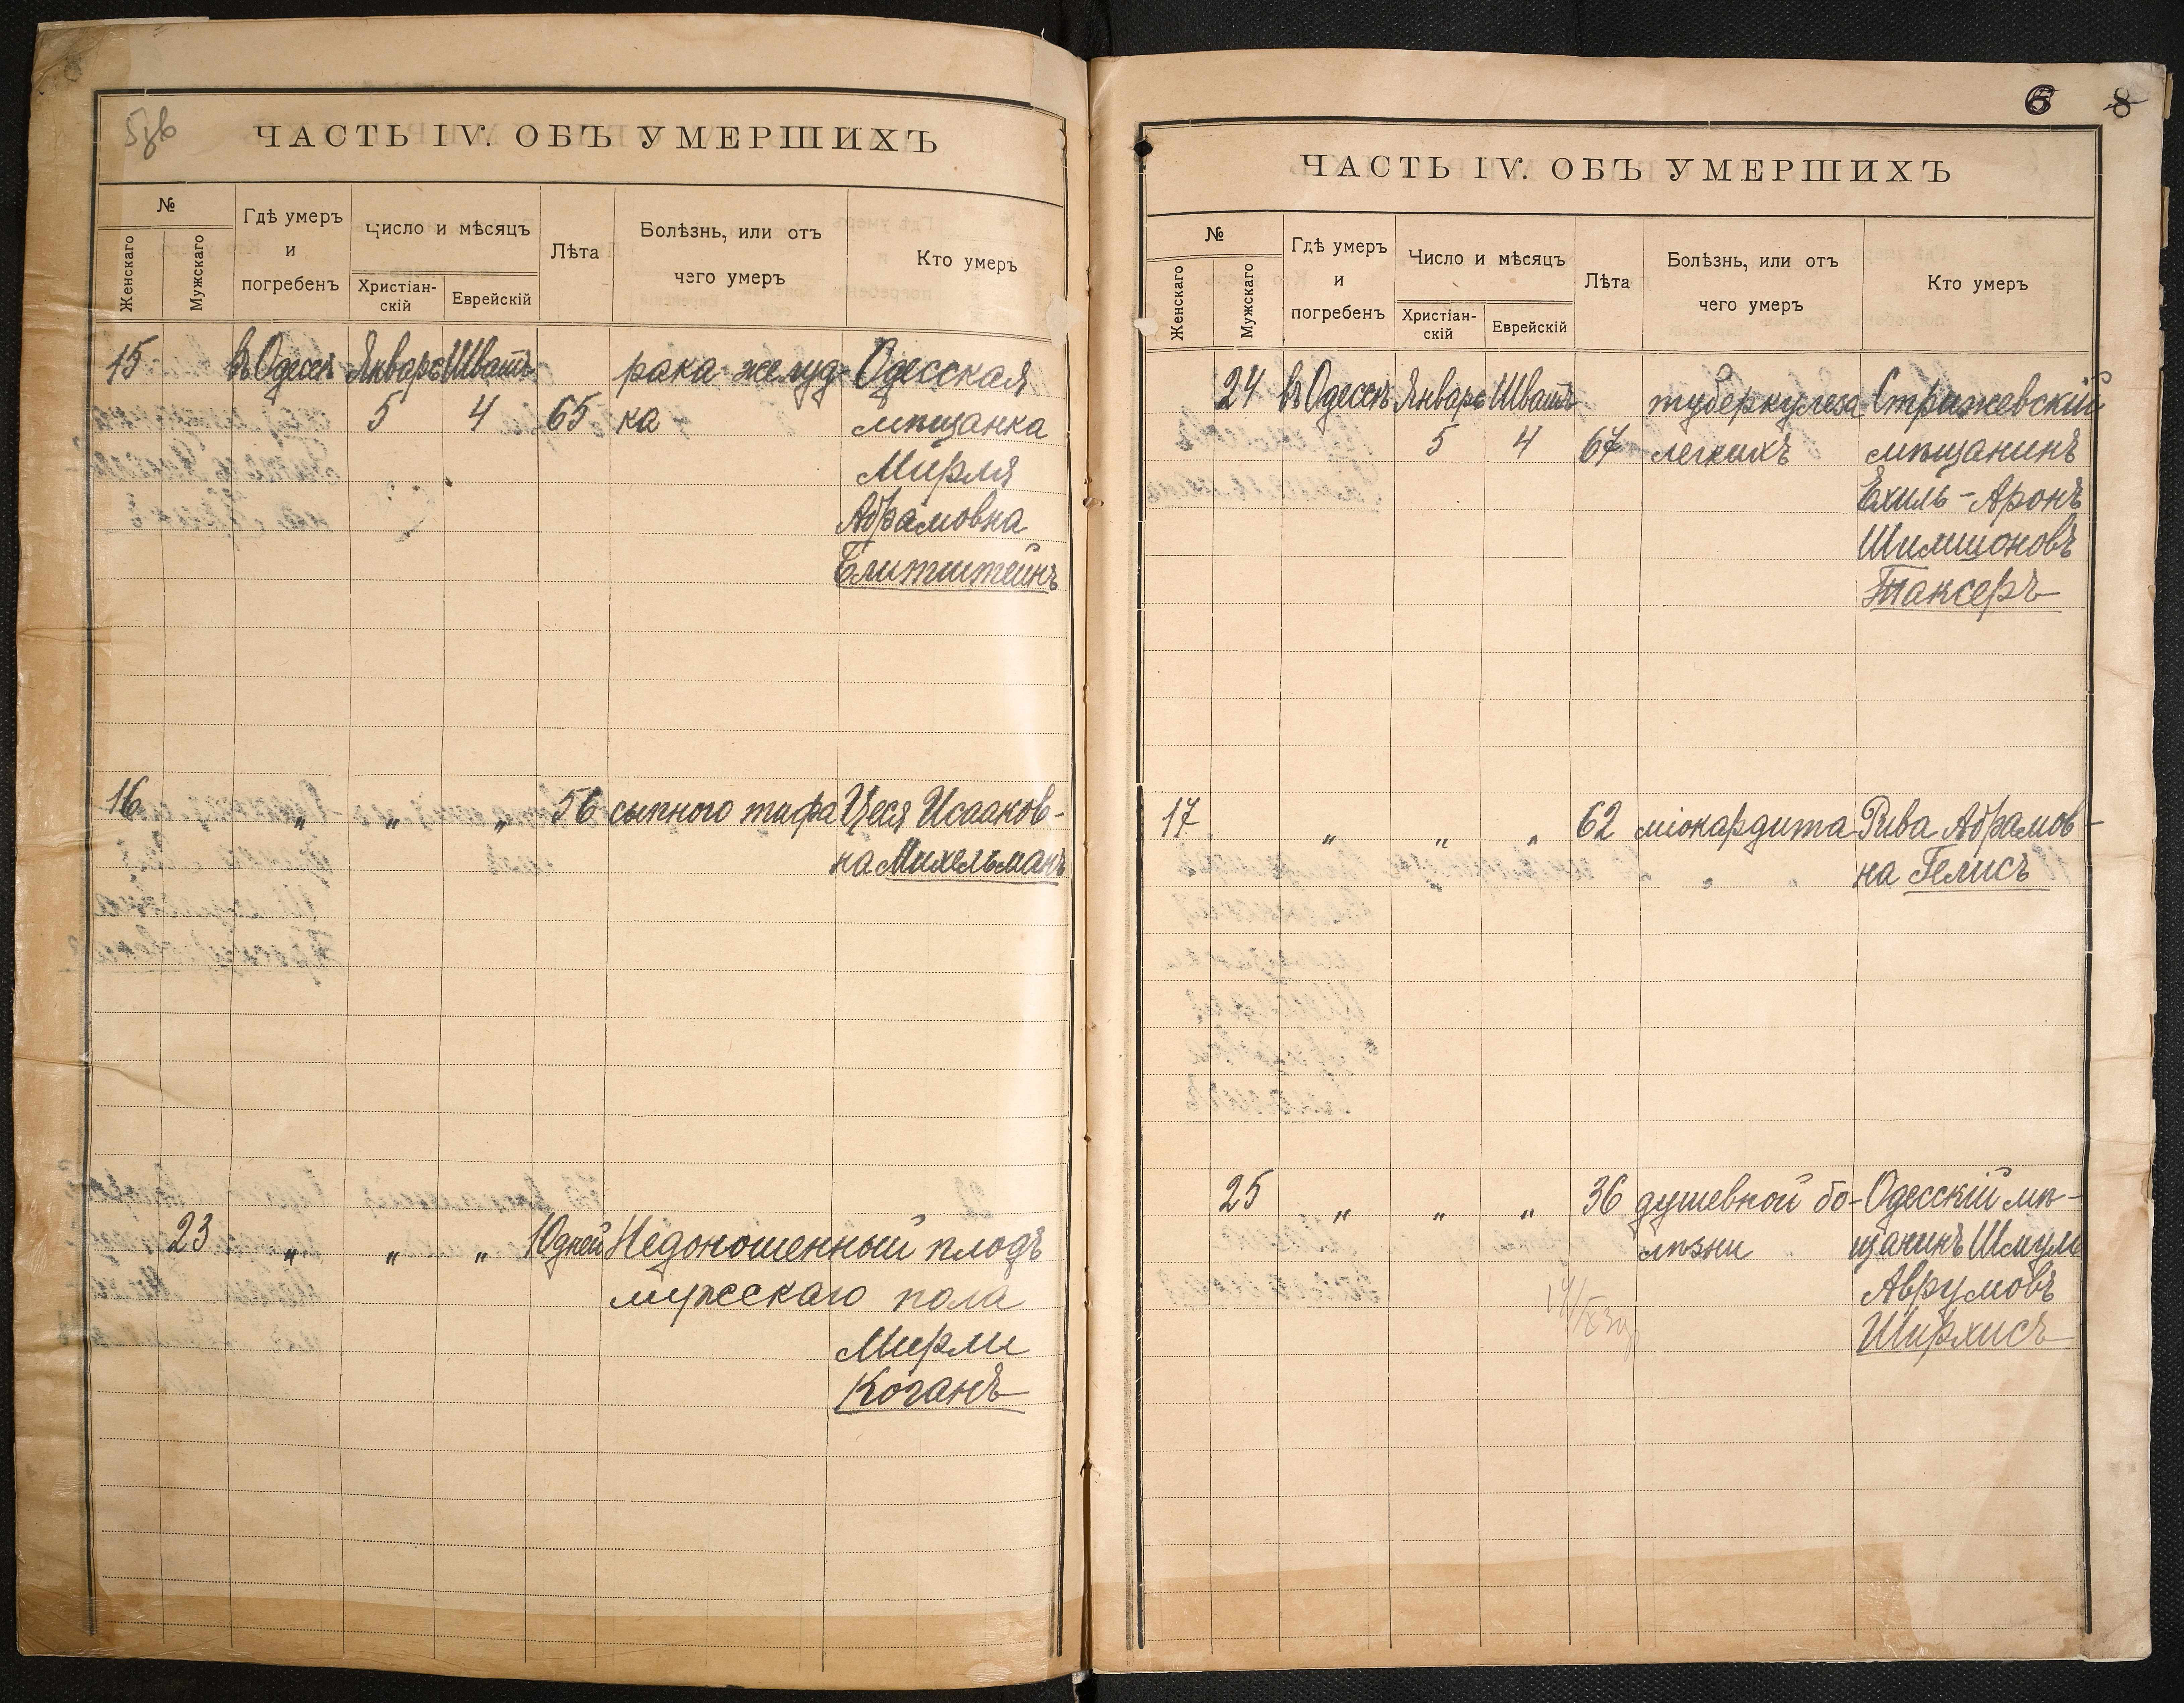 ЧАСТЬ IV. ОБЪ УМЕРШИХЪ
№
Женскаго
Мужскаго
Гдѣ умеръ
и
погребенъ
Число и мѣсяцъ
Христіан-
скій
Еврейскій
Лѣта
Болѣзнь, или отъ
чего умеръ
Кто умеръ
15 въ Одессѣ Январь Шватъ рака желуд- Одесская
5 4 65 ка мѣщанка
Мирля
Абрамовна
Блитштейнъ
16 " " " 56 сыпного тифа Цеся Исааков-
на Михельманъ
23 " " " 10 дней Недоношенный плодъ
мужескаго пола
Мирли
Коганъ
6 8
ЧАСТЬ IV. ОБЪ УМЕРШИХЪ
№
Женскаго
Мужскаго
Гдѣ умеръ
и
погребенъ
Число и мѣсяцъ
Христіан-
скій
Еврейскій
Лѣта
Болѣзнь, или отъ
чего умеръ
Кто умеръ
24 въ Одессѣ Январь Шватъ туберкулеза Стрижевскій
5 4 67 легкихъ мѣщанинъ
Ехиль-Аронъ
Шимшоновъ
Таксеръ
17 " " " 62 міокардита Рива Абрамов-
на Гелисъ
25 " " " 36 душевной бо- Одесскій мѣ-
лѣзни щанинъ Шмуль
Аврумовъ
Ширхисъ